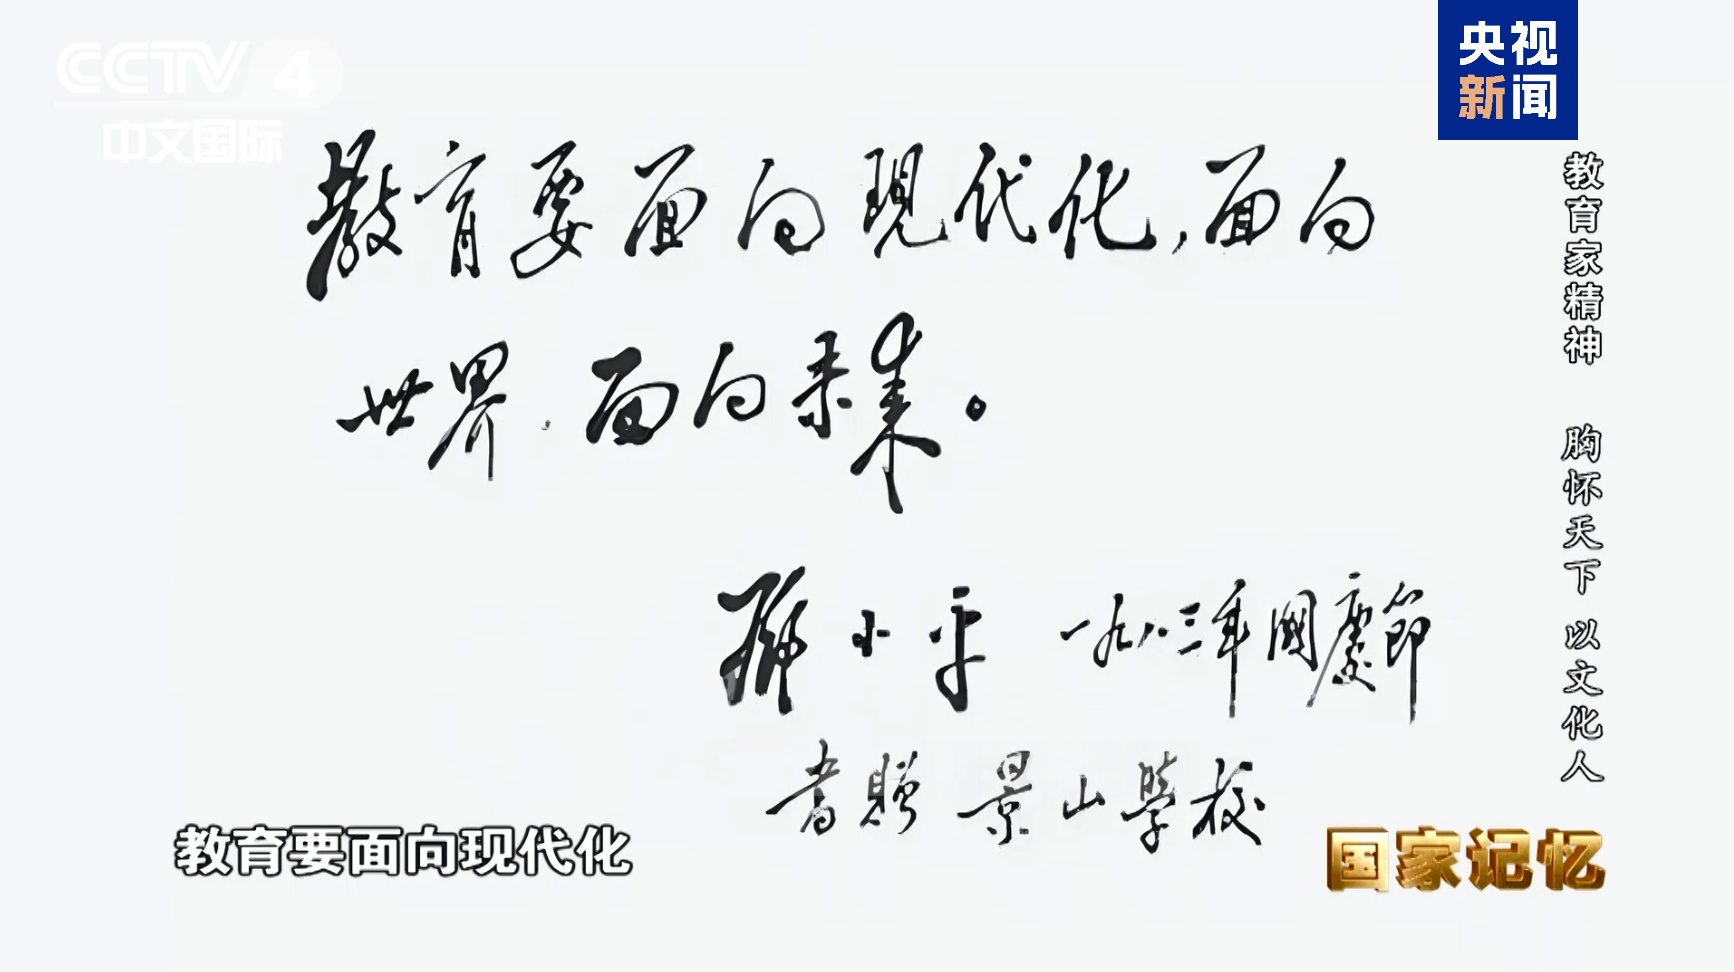 CCTV 4
中文国际
央视
新闻
教育要面向現代化，面向
世界，面向未来。
鄧小平 一九八三年國慶節
書贈 景山學校
教育家精神 胸怀天下 以文化人
教育要面向现代化
国家记忆